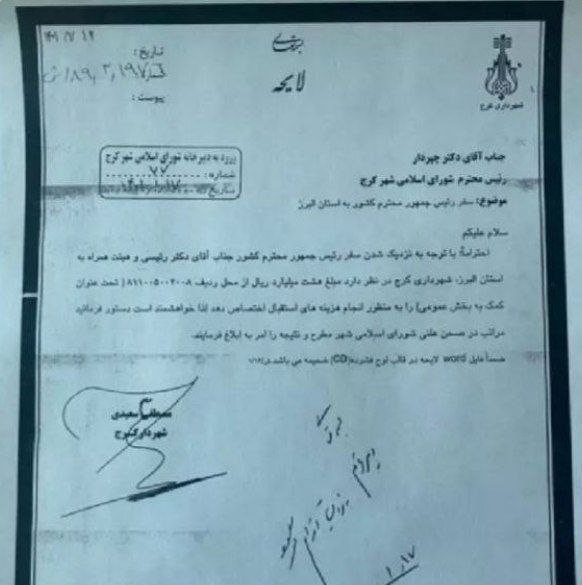 لایحه
شهرداری کرج
تاریخ:
پیوست:
ورود به دبیرخانه شورای اسلامی شهر کرج
شماره: ۷۷
تاریخ
جناب آقای دکتر چهردار
رئیس محترم شورای اسلامی شهر کرج
موضوع: سفر رئیس جمهور محترم کشور به استان البرز
سلام علیکم
احتراماً؛ با توجه به نزدیک شدن سفر رئیس جمهور محترم کشور جناب آقای دکتر رئیسی و هیئت همراه به
استان البرز، شهرداری کرج در نظر دارد مبلغ هشت میلیارد ریال از محل ردیف ( تحت عنوان
کمک به بخش عمومی) را به منظور انجام هزینه های استقبال اختصاص دهد لذا خواهشمند است دستور فرمائید
مراتب در صحن علنی شورای اسلامی شهر مطرح و نتیجه را امر به ابلاغ فرمایند.
ضمناً فایل word لایحه در قالب لوح فشرده(CD) ضمیمه می باشد.
مصطفی سعیدی
شهردار کرج